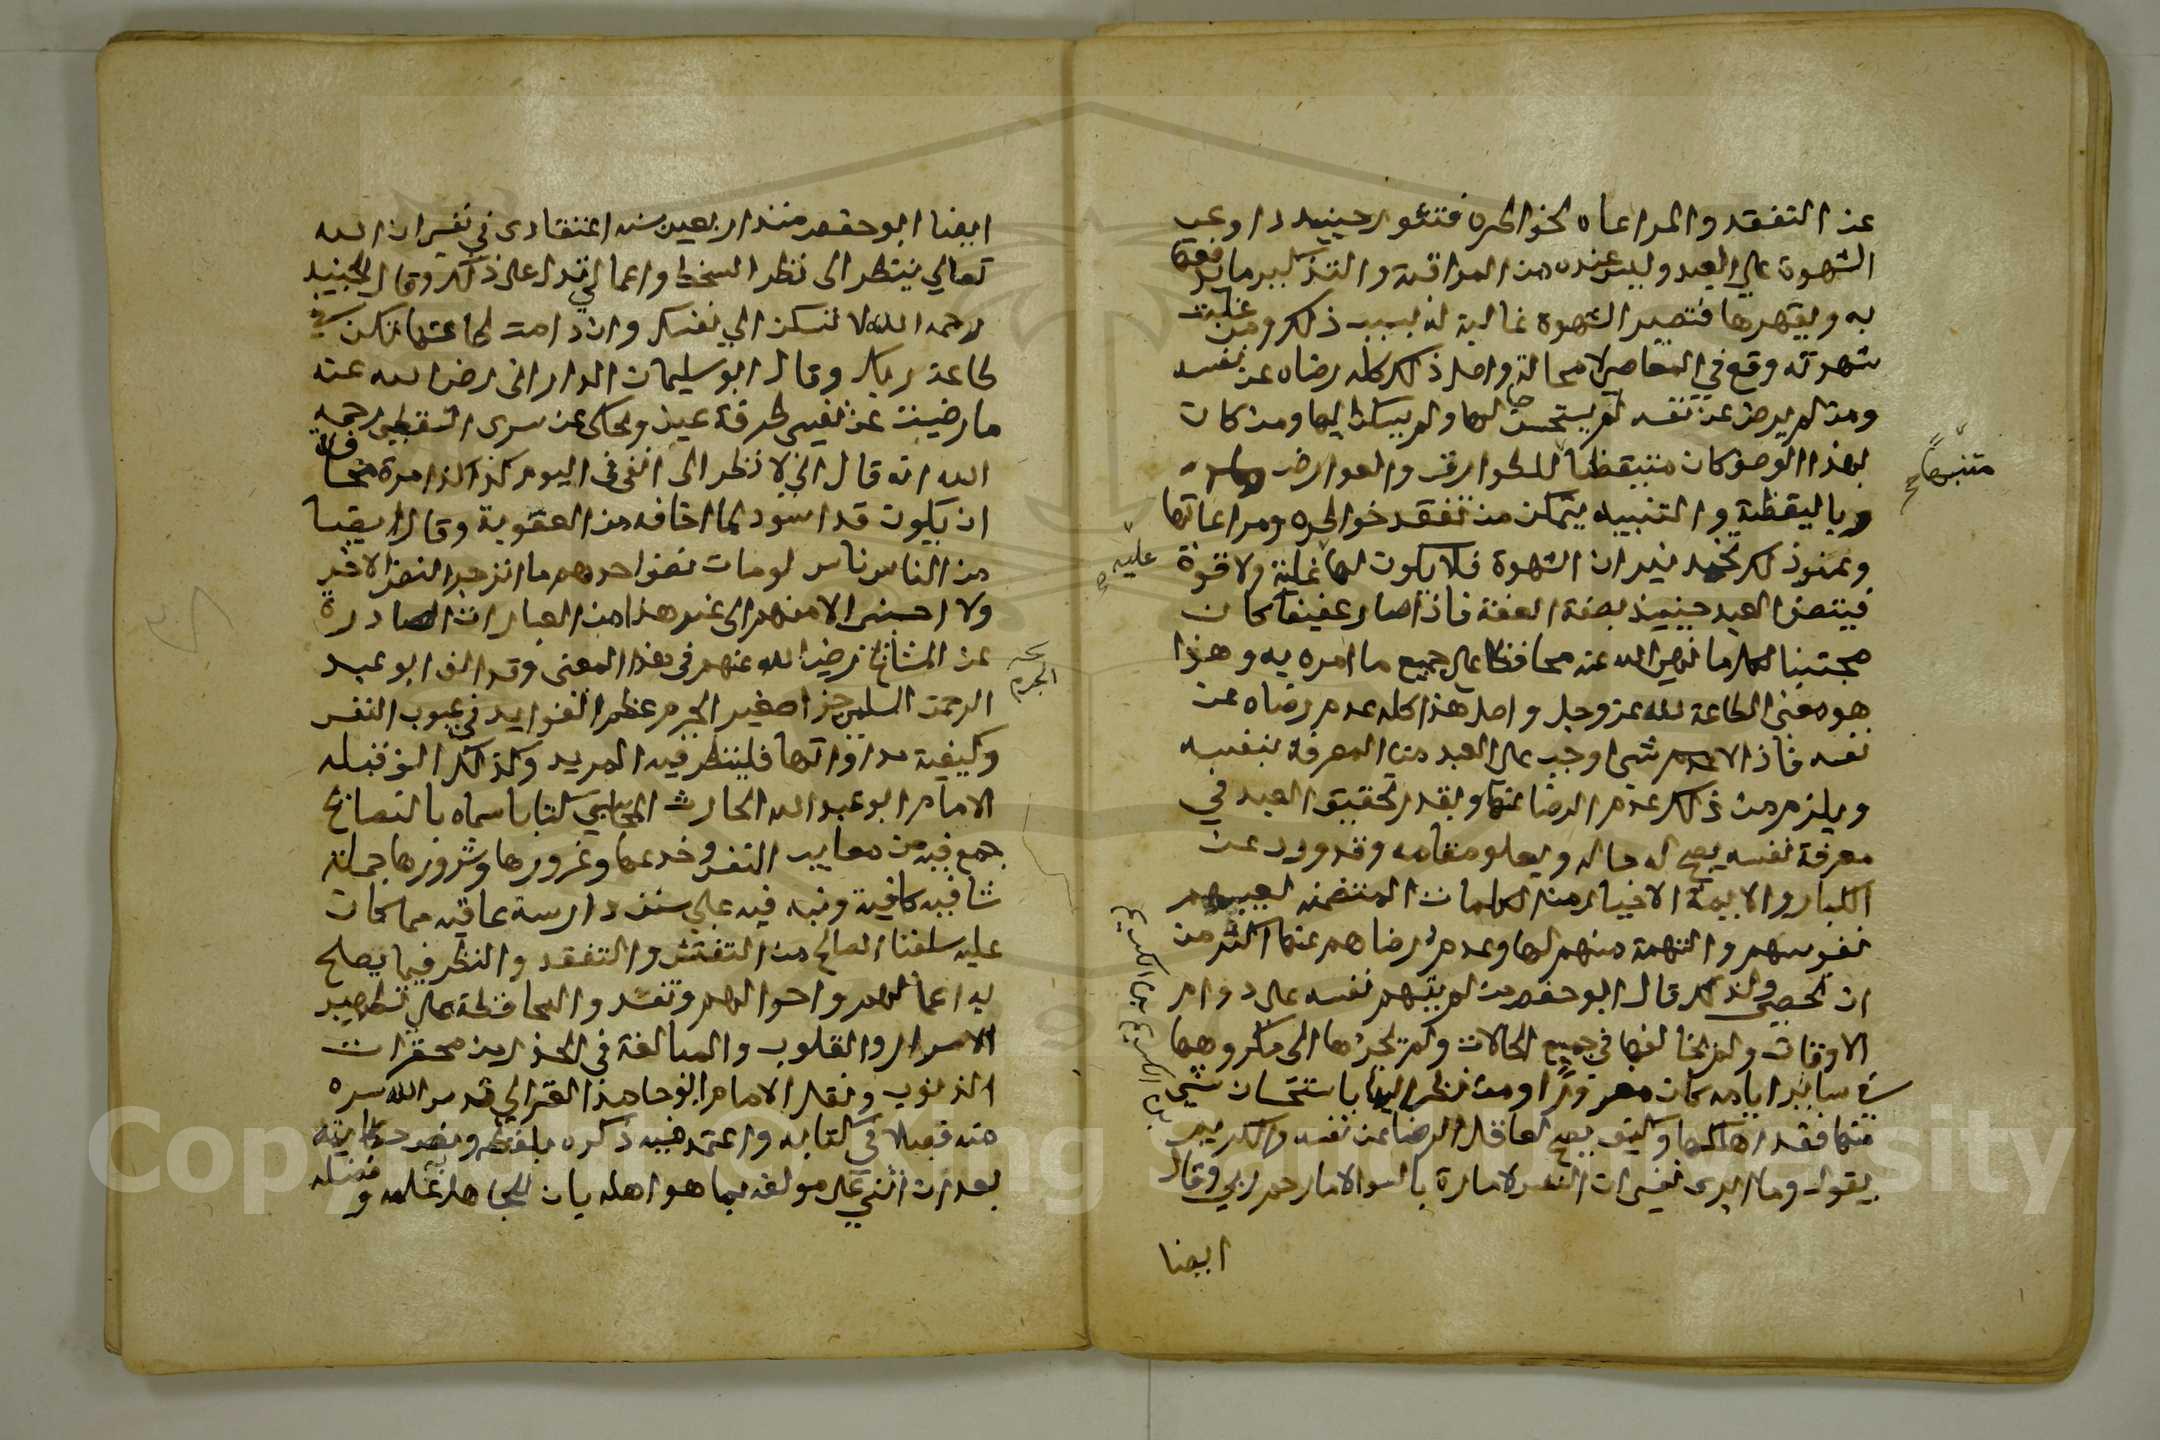 عن التفقد والمراعاه لخواطره فتثور حينيد دواعي
الشهوة علي العبد وليس عنده من المراقبة والتذكير ما يدفعها
به ويقهرها فتصير الشهوة غالبة له بسبب ذلك ومن غلبت
شهوته وقع في المعاصي لا محالة واصل ذلك كله رضاه عن نفسه
ومن لم يرض عن نفسه لم يستحسن حالها ولم يسكن اليها ومن كان
بهذا الوصف كان متيقظا للطوارق والعوارض
وباليقظة والتنبيه يتمكن من تفقد خواطره ومراعاتها
وعند ذلك تخمد نيران الشهوة فلا يكون لها غلبة ولا قوة
فيتصف العبد حينيذ بصفة العفة فاذا صار عفيفا كان
مجتنبا لكل ما نهي الله عنه محافظا علي جميع ما امره به وهذا
هو معني الطاعة لله عز وجل واصل هذا كله عدم رضاه عن
نفسه فاذا لا شي اوجب علي العبد من المعرفة بنفسه
ويلزم من ذلك عدم الرضا عنها وبقدر تحقيق العبد في
معرفة نفسه يصح له حاله ويعلو مقامه وقد ورد عن
الكبار والايمة الاخيار من الكلمات المتضمنه لعيبهم
نفوسهم والتهمة منهم لها وعدم رضاهم عنها اكثر من
ان تحصي ولذلك قال ابو حفص من لم يتهم نفسه علي دوام
الاوقات ولم يخالفها في جميع الحالات ولم يجرها الي مكروهها
في ساير ايامه كان مغرورا ومن نظر اليها باستحسان شي
منها فقد اهلكها وكيف يصح لعاقل الرضا عن نفسه والكريم
يقول وما ابري نفسي ان النفس لامارة بالسو الا ما رحم ربي وقال
ايضا
متنبها
صح
غلبة
ابن الكريم بن الكريم
ايضا ابو حفص منذ اربعين سنه اعتقادي في نفسي ان الله
تعالي ينظر الي نظر السخط واعمالي تدل علي ذلك وقال الجنيد
رحمه الله لا تسكن الي نفسك وان دامت طاعتها لك في
طاعة ربك وقال ابو سليمان الداراني رضي الله عنه
ما رضيت عن نفسي طرفة عين ويحكي عن سري السقطي رحمه
الله انه قال اني لانظر الي انفي في اليوم كذا كذا مرة مخافة
ان يكون قد اسود لما اخافه من العقوبة وقال ايضا
من الناس ناس لو مات نصف احدهم ما انزجر النصف الاخر
ولا احسبني الا منهم الي غير هذا من العبارات الصادرة
عن المشايخ رضي الله عنهم في هذا المعني وقد الف ابو عبد
الرحمن السلمي جزا صغير الجرم عظيم الفوايد في عيوب النفس
وكيفية مداواتها فلينظر فيه المريد وكذلك الف قبله
الامام ابو عبد الله الحارث المحاسبي كتابا سماه بالنصايح
جمع فيه من معايب النفس وخدعها وغرورها وشرورها جملة
شافيه كافية ونبه فيه علي سنن دارسة عافيه مما كان
عليه سلفنا الصالح من التفتيش والتفقد والنظر فيما يصلح
به اعمالهم واحوالهم والمحافظة علي تطهير
الاسرار والقلوب والمبالغة في الحذر من محقرات
الذنوب ونقل الامام ابو حامد الغزالي قدس الله سره
منه فصلا في كتابه واعتمد فيه ذكره بلفظه ونصه
بعد ان اثني علي مولفه بما هو اهله بان للجاهل علمه وفضله
نحه
الجرم